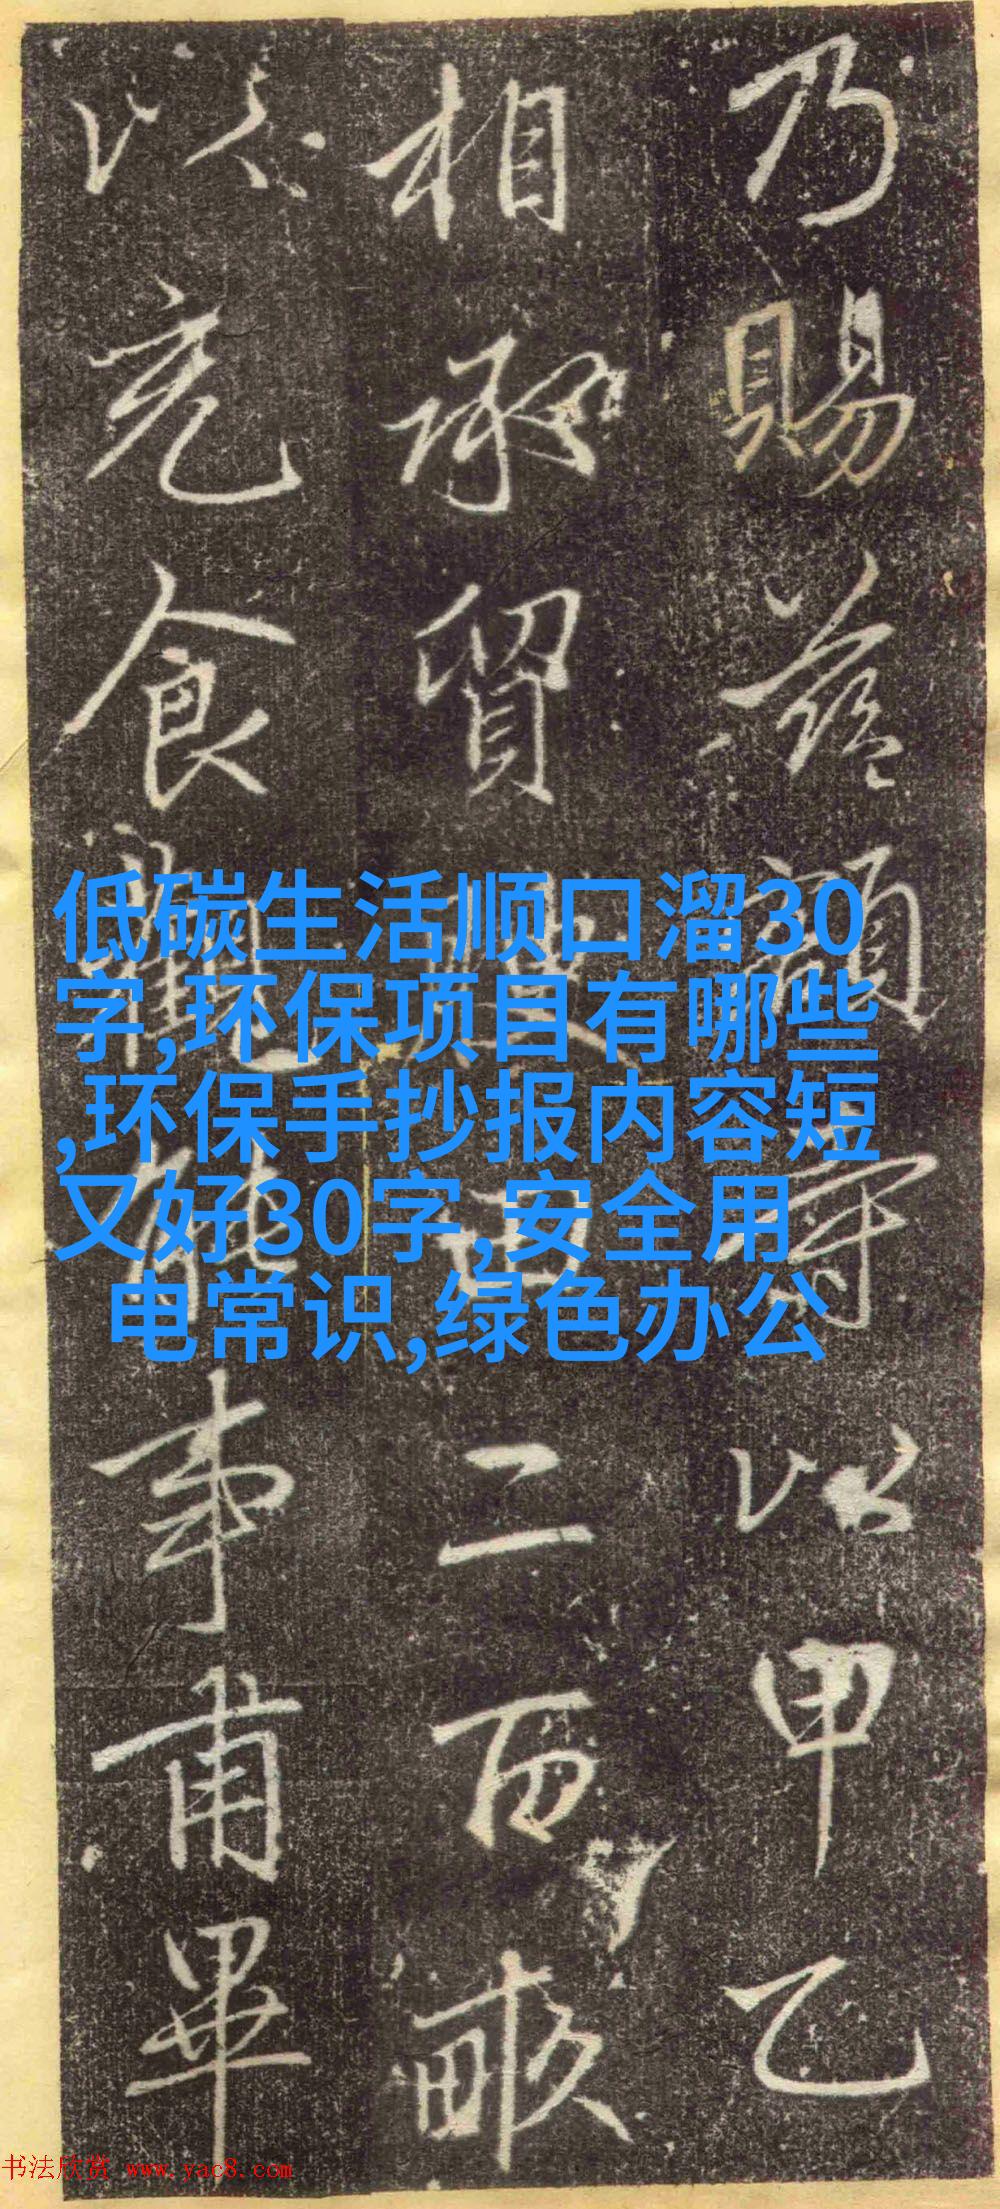 乃賜益額守以甲乙
相承貿莊田二百畝
以充食觀能事甫畢
低碳生活顺口溜30
字,环保项目有哪些
,环保手抄报内容短
又好30字,安全用
电常识,绿色办公
书法欣赏 www.yac8.com